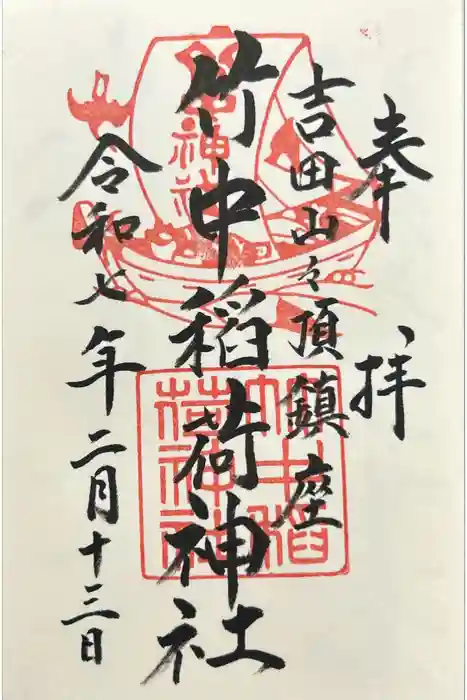 奉拝
吉田山々頂鎮座
竹中稲荷神社
令和七年二月十三日
竹中稲
荷神社